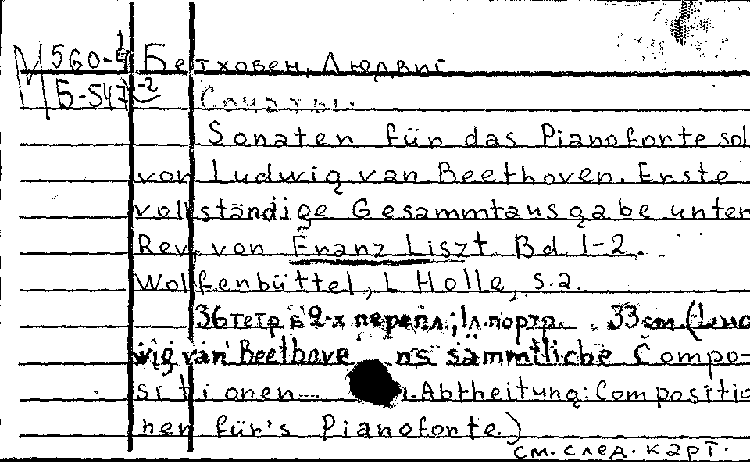 М 560-4 Бетховен, Людвиг
Б-547-2 Сонаты.
Sonaten für das Pianoforte sol
von Ludwig van Beethoven. Erste
vollständige Gesammtausgabe unter
Rev. von Franz Liszt. Bd 1-2.
Wolfenbüttel, L Holle, s.a.
36 тетр в 2-х перепл.; 1 л. портр. 33 см. (Lud
wig van Beethoven's sämmtliche Compo-
sitionen... Abtheitung: Compositio
nen für's Pianoforte.)
см. след. карт.